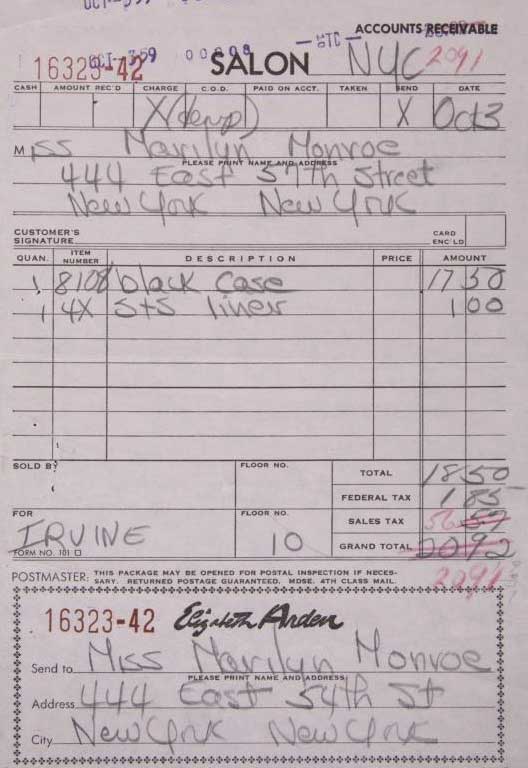 ACCOUNTS RECEIVABLE
OCT-3 59 00008
16323-42 SALON NYC 2091
CASH AMOUNT REC'D CHARGE C.O.D. PAID ON ACCT. TAKEN SEND DATE
X X Oct 3
MISS Marilyn Monroe
PLEASE PRINT NAME AND ADDRESS
444 East 57th Street
New York New York
CUSTOMER'S SIGNATURE CARD ENC'LD
QUAN. ITEM NUMBER DESCRIPTION PRICE AMOUNT
1 8108 black case 17 50
1 4X S+S liner 1 00
SOLD BY FLOOR NO. TOTAL 18.50
FEDERAL TAX 1 85
FOR FLOOR NO. SALES TAX 56 57
IRVINE 10 GRAND TOTAL 20 92
FORM NO. 101
2091
POSTMASTER: THIS PACKAGE MAY BE OPENED FOR POSTAL INSPECTION IF NECES-
SARY. RETURNED POSTAGE GUARANTEED. MDSE. 4TH CLASS MAIL.
16323-42 Elizabeth Arden
Send to Miss Marilyn Monroe
PLEASE PRINT NAME AND ADDRESS
Address 444 East 54th St
City New York New York